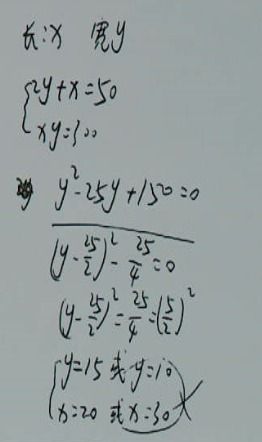 长:x 宽y
{2y+x=50
xy=300
y²-25y+150=0
(y-25/2)²-25/4=0
(y-25/2)²=25/4=(5/2)²
{y=15或y=10
x=20或x=30